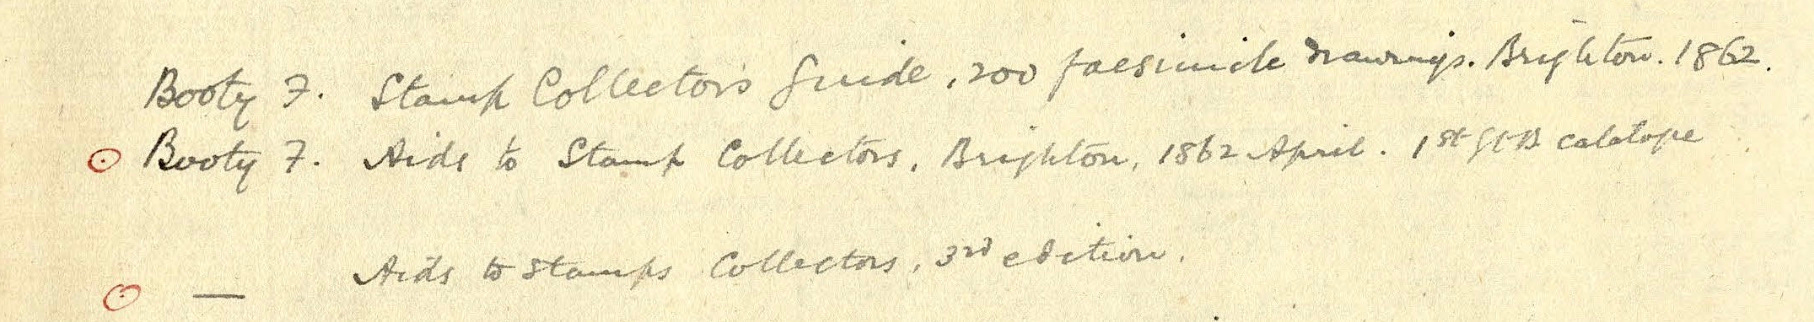 Booty F. Stamp Collector's Guide, 200 facsimile drawings. Brighton. 1862.
Booty F. Aids to Stamp Collectors, Brighton, 1862 April. 1st Gt B catalogue
— Aids to Stamps Collectors, 3rd edition.